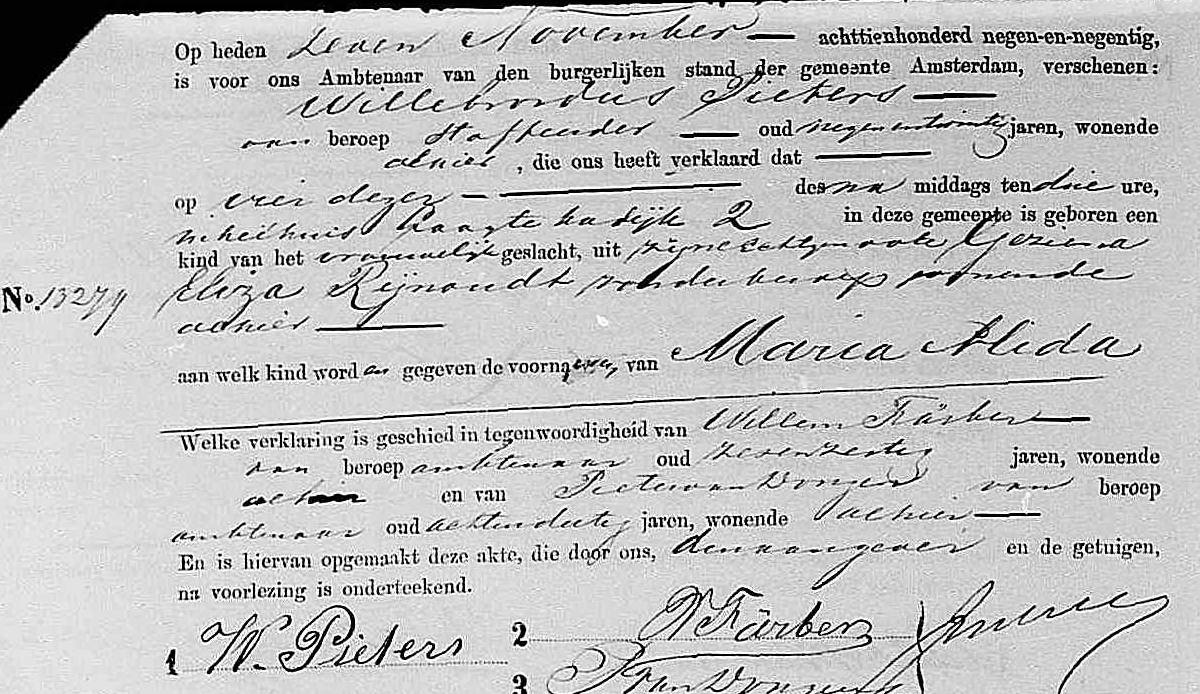 Op heden zeven November — achttienhonderd negen-en-negentig,
is voor ons Ambtenaar van den burgerlijken stand der gemeente Amsterdam, verschenen:
Willebrordus Pieters —
van beroep — oud negenentwintig jaren, wonende
alhier, die ons heeft verklaard dat —
op vier dezer — des na middags ten drie ure,
in het huis Laagte kadijk 2 in deze gemeente is geboren een
kind van het vrouwelijk geslacht, uit zijne echtgenoote Geziena
No. 13279 Eliza Rijnoudt zonder beroep wonende
alhier —
aan welk kind word en gegeven de voornamen van Maria Alida
Welke verklaring is geschied in tegenwoordigheid van Willem Färber —
van beroep ambtenaar oud zesenzestig jaren, wonende
alhier en van Pieter van Dongen van beroep
ambtenaar oud achtendertig jaren, wonende alhier —
En is hiervan opgemaakt deze akte, die door ons, den aangever en de getuigen,
na voorlezing is onderteekend.
1 W. Pieters 2 W Färber
3 P van Dongen